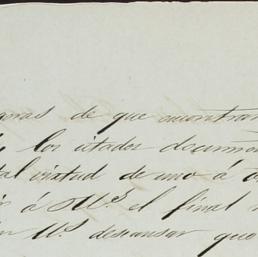 de que encontran
los citados docum
tal virtud de uno á
á M.s el final
M.s descansar que